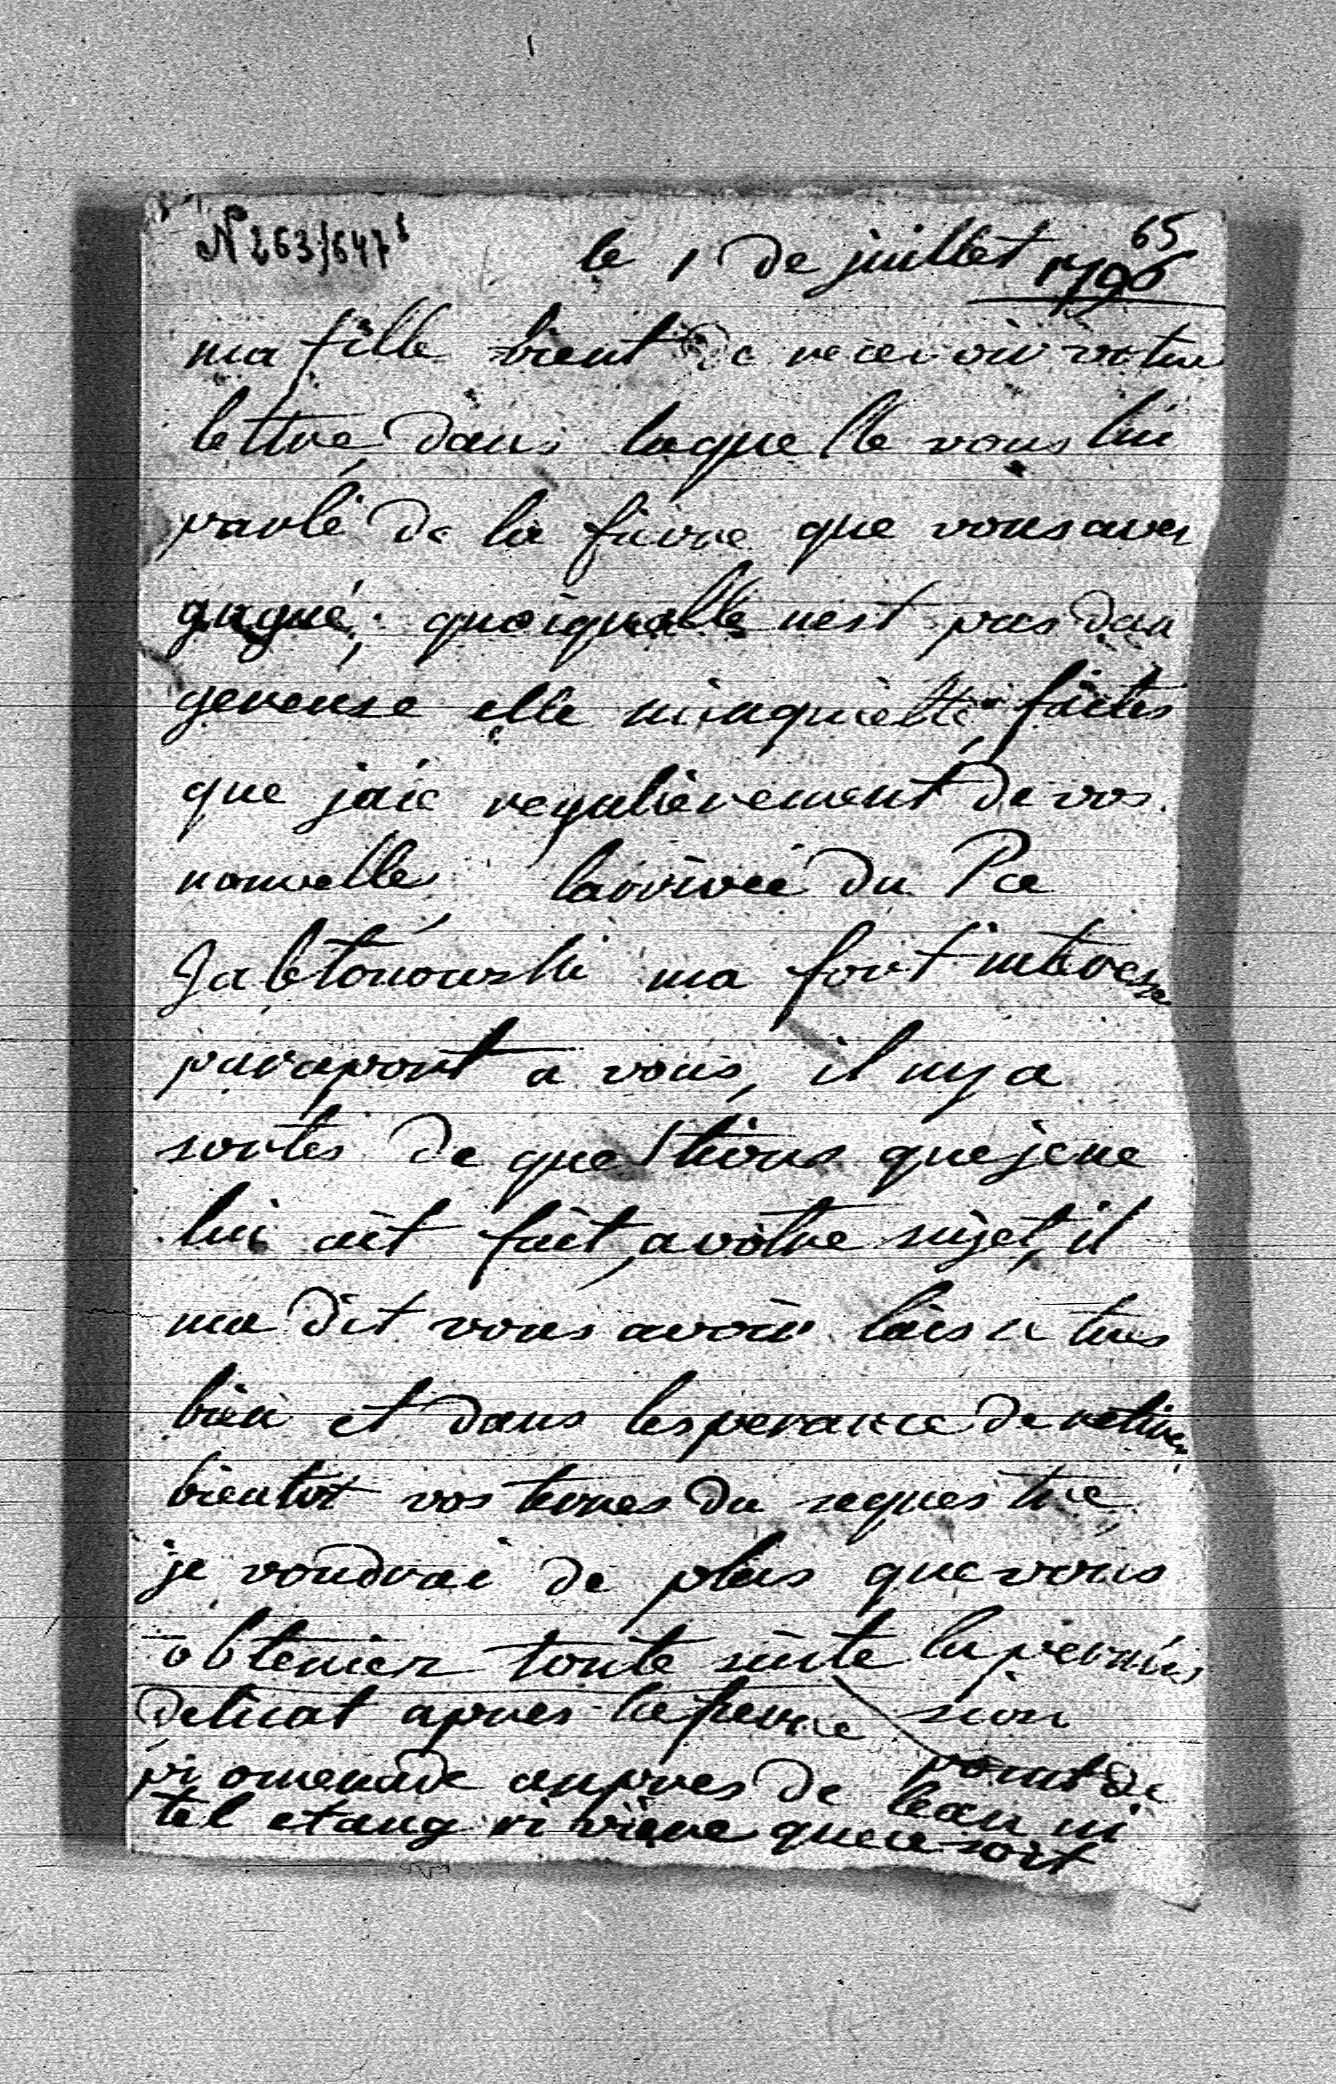 N 263/647
65
le 1 de juillet 1796
ma fille vient de recevoir votre
lettre dans laquelle vous lui
parlé de la fievre que vous avez
gagné, quoiquelle nest pas dan
gereuse elle minquiette, faites
que jaie regulièrement de vos
nouvelles, larrivée du Pce
Jablonowski ma fort interesse
paraport a vous, il ny a
sortes de questions que je ne
lui ait fait, a vôtre sujet, il
ma dit vous avoir laissé tres
bien et dans lesperance de retirer
bientot vos terres du sequestre,
je voudrai de plus que vous
obteniez toute suite la permis
sion
delicat apres la fievre point de
promenade aupres de leau ni
tel etang riviere que ce soit